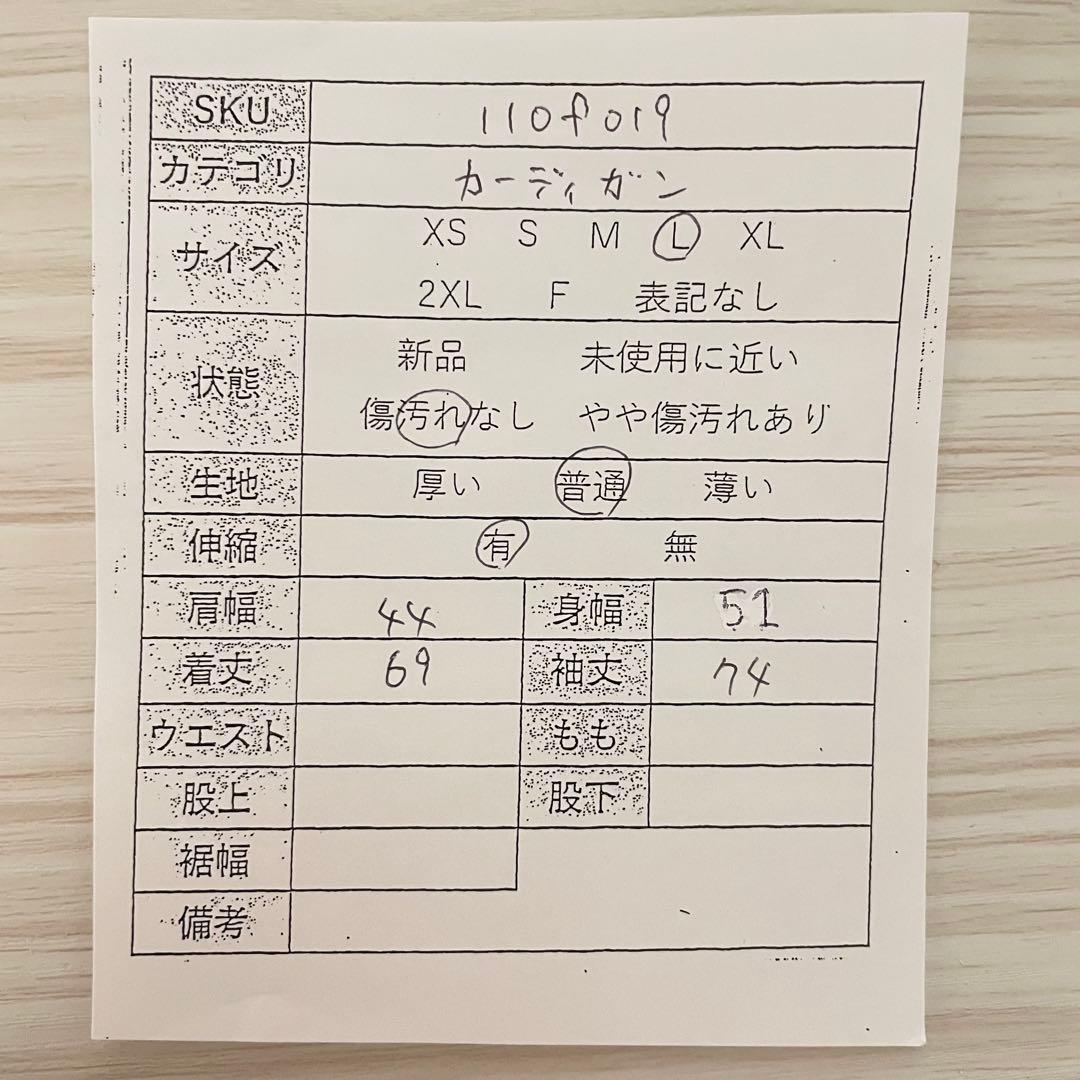 SKU 110f019
カテゴリ カーディガン
サイズ XS S M L XL
2XL F 表記なし
状態 新品 未使用に近い
傷汚れなし やや傷汚れあり
生地 厚い 普通 薄い
伸縮 有 無
肩幅 44 身幅 51
着丈 69 袖丈 74
ウエスト もも
股上 股下
裾幅
備考